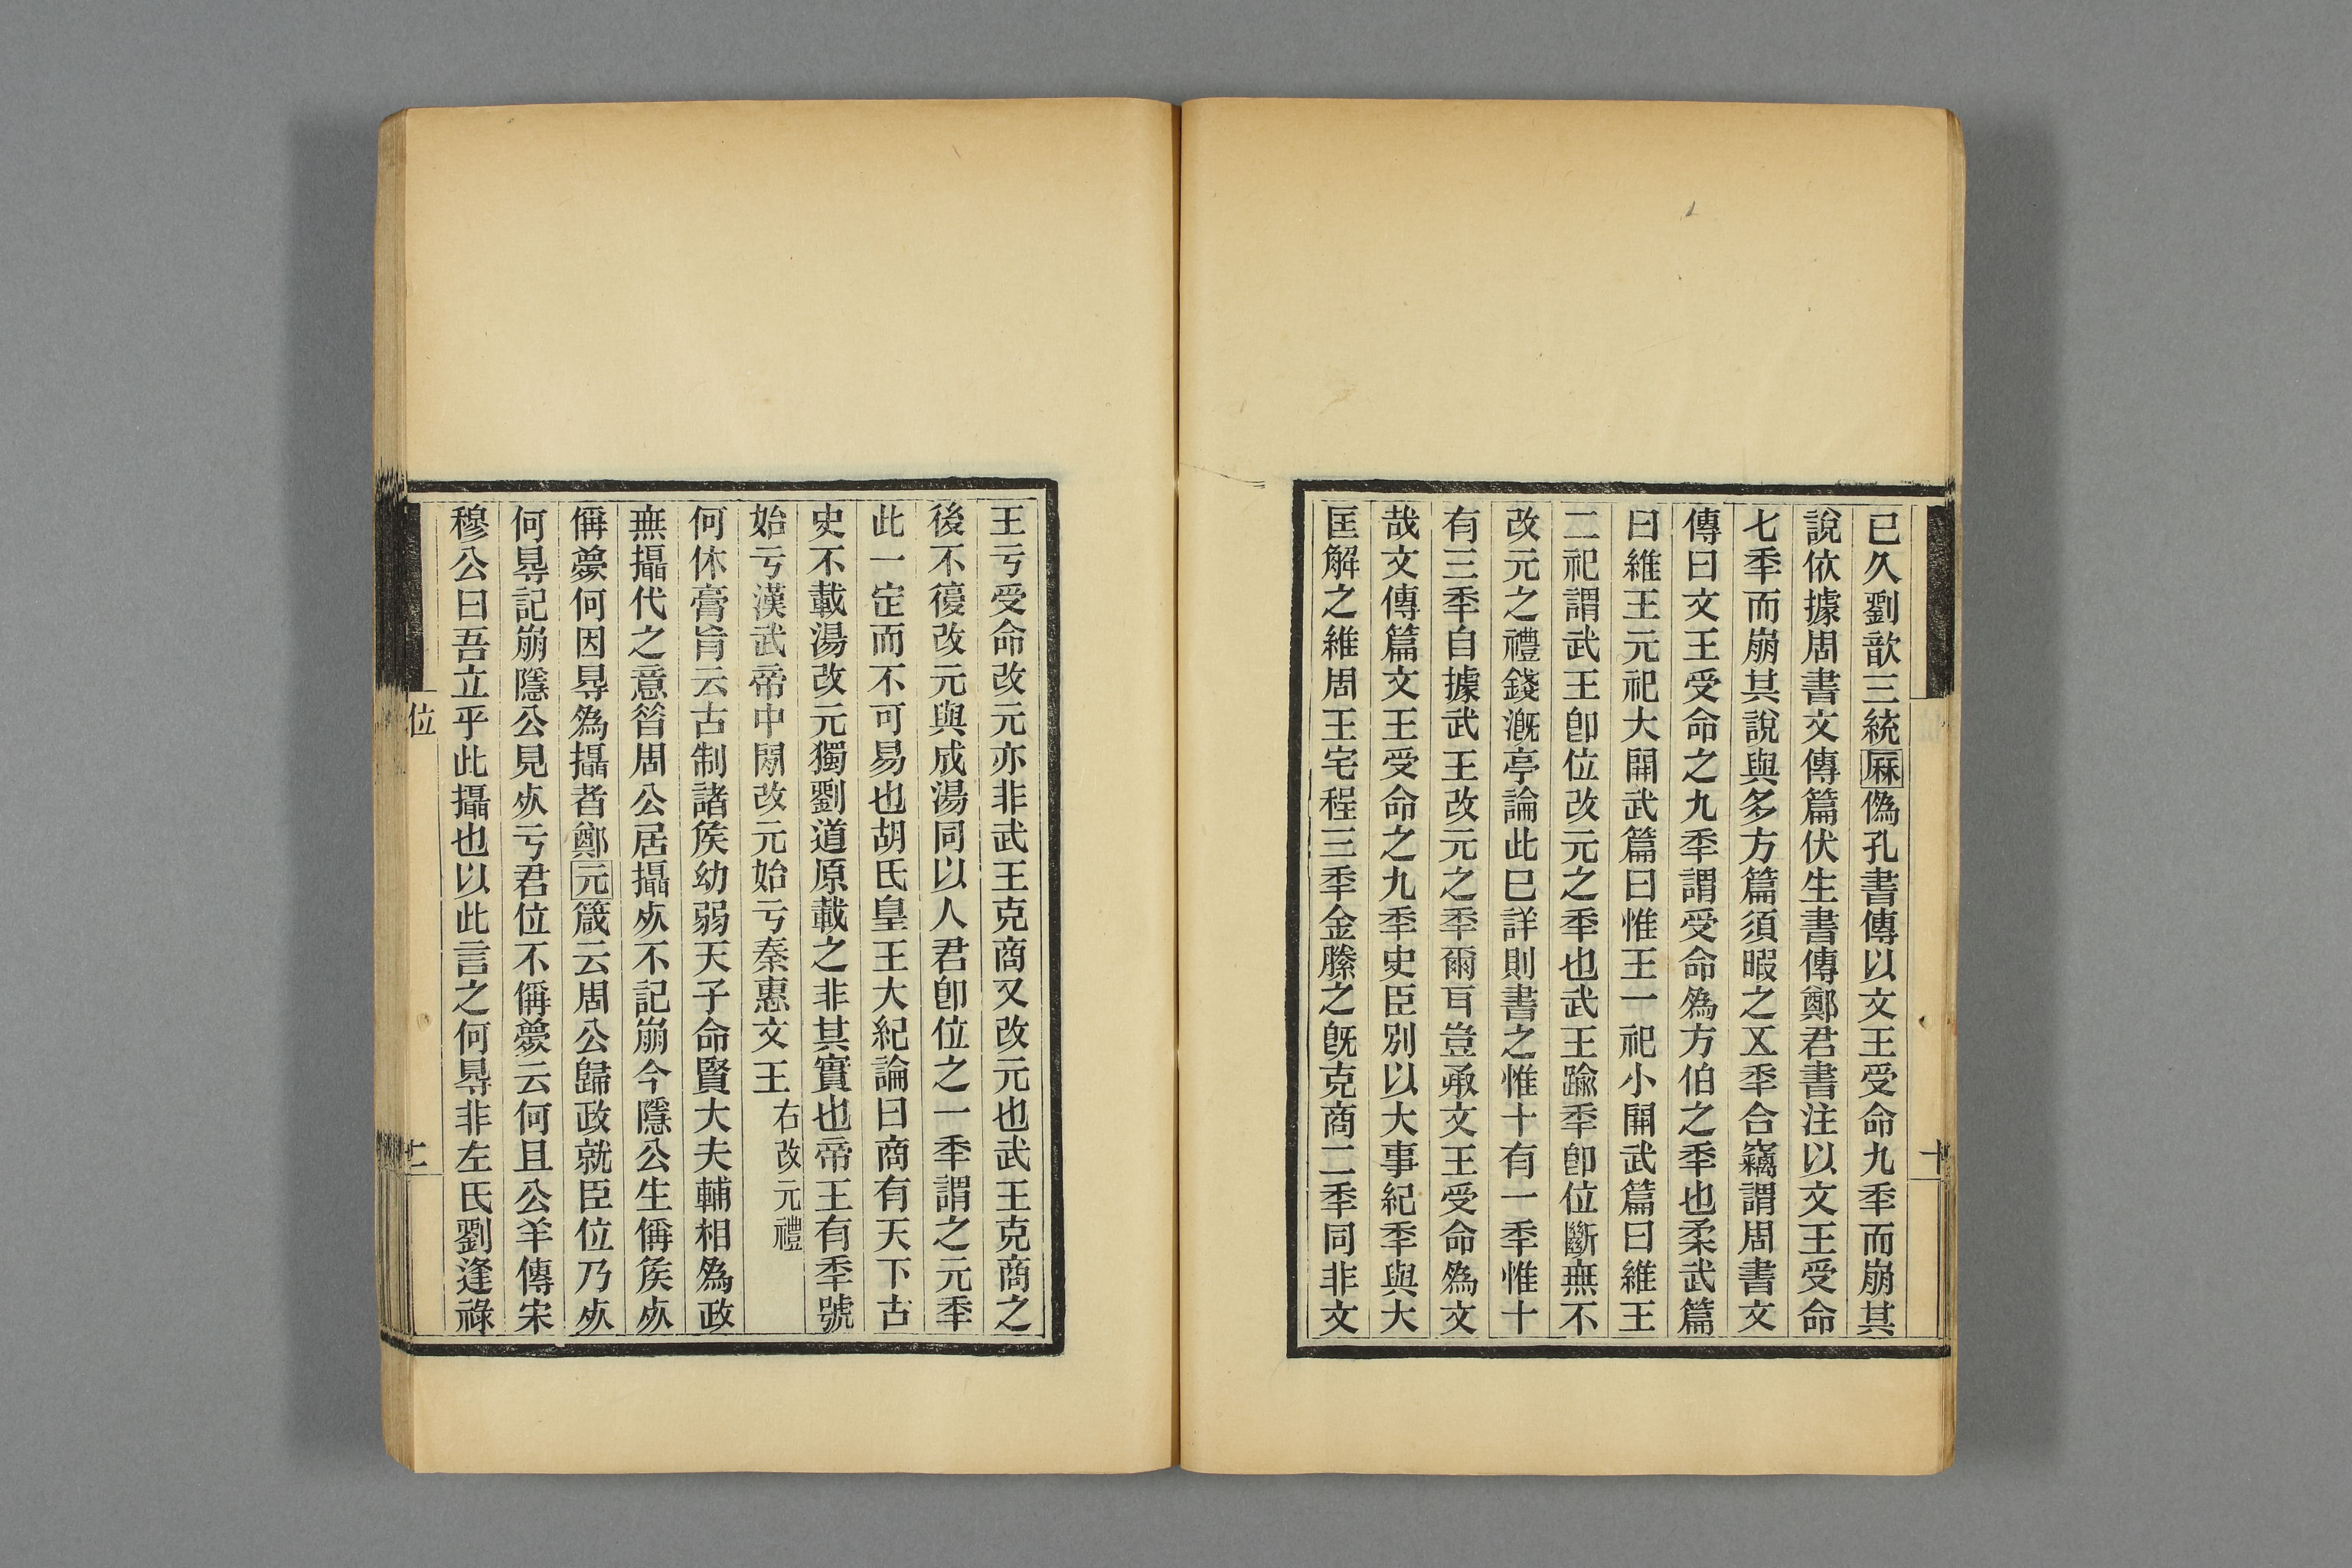 已久劉歆三統厤僞孔書傳以文王受命九秊而崩其
說依據周書文傳篇伏生書傳鄭君書注以文王受命
七秊而崩其說與多方篇須暇之㐅秊合竊謂周書文
傳曰文王受命之九秊謂受命爲方伯之秊也柔武篇
曰維王元祀大開武篇曰惟王一祀小開武篇曰維王
二祀謂武王卽位改元之秊也武王踰秊卽位斷無不
改元之禮錢溉亭論此已詳則書之惟十有一秊惟十
有三秊自據武王改元之秊爾豈承文王受命爲文
哉文傳篇文王受命之九秊史臣別以大事紀秊與大
匡解之維周王宅程三秊金縢之旣克商二秊同非文
王亏受命改元亦非武王克商又改元也武王克商之
後不復改元與成湯同以人君卽位之一秊謂之元秊
此一定而不可易也胡氏皇王大紀論曰商有天下古
史不載湯改元獨劉道原載之非其實也帝王有秊號
始亏漢武帝中閒改元始亏秦惠文王右改元禮
何休膏肓云古制諸矦幼弱天子命賢大夫輔相爲政
無攝代之意昔周公居攝𣦸不記崩今隱公生偁矦𣦸
偁薨何因㝵爲攝者鄭元箴云周公歸政就臣位乃𣦸
何㝵記崩隱公見𣦸亏君位不偁薨云何且公羊傳宋
穆公曰吾立乎此攝也以此言之何㝵非左氏劉逢祿
位
十
二